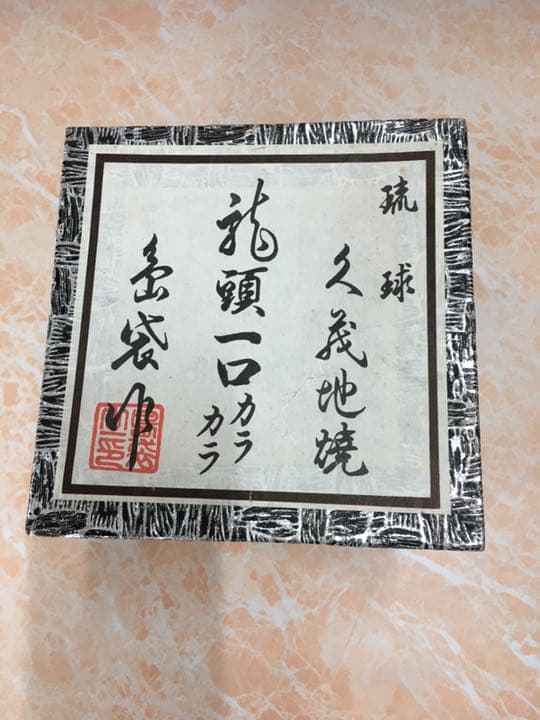 琉球
久茂地焼
龍頭一口カラカラ
島袋作